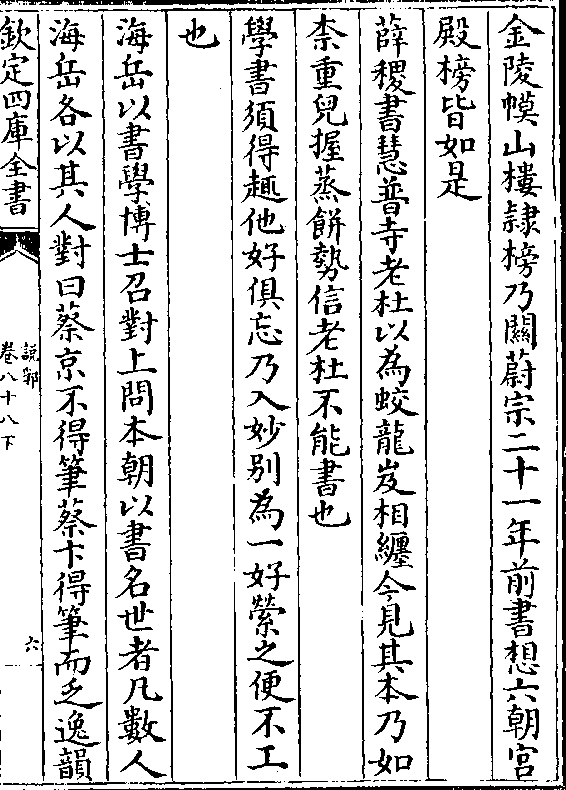 金陵幙山樓隷榜乃關蔚宗二十一年前書想六朝宮
殿榜皆如是
薛稷書慧普寺老杜以為蛟龍岌相纏今見其本乃如
柰重兒握蒸餅勢信老杜不能書也
學書須得趣他好俱忘乃入妙别為一好縈之便不工
也
海岳以書學博士召對上問本朝以書名世者凡數人
海岳各以其人對曰蔡京不得筆蔡卞得筆而乏逸韻
欽定四庫全書
說郛
卷八十八下
六